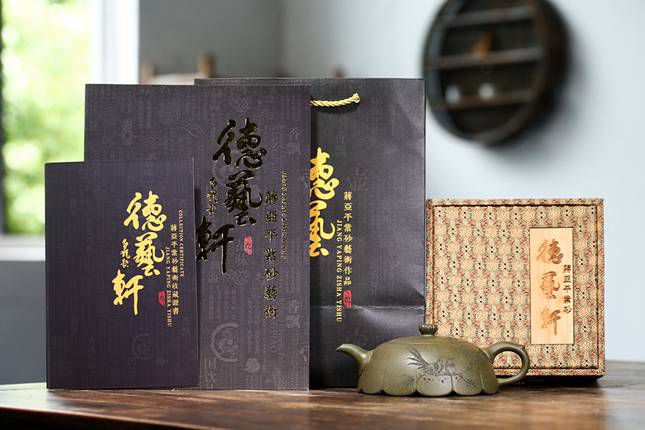 德藝軒
COLLECTION CERTIFICATE
蔣亞平紫砂藝術收藏證書
JIANG YAPING ZISHA YISHU
德藝軒
蔣亞平紫砂藝術
德藝
蔣亞平紫砂藝術作品
JIANG YAPING ZISHA YISHU
德藝軒
蔣亞平紫砂